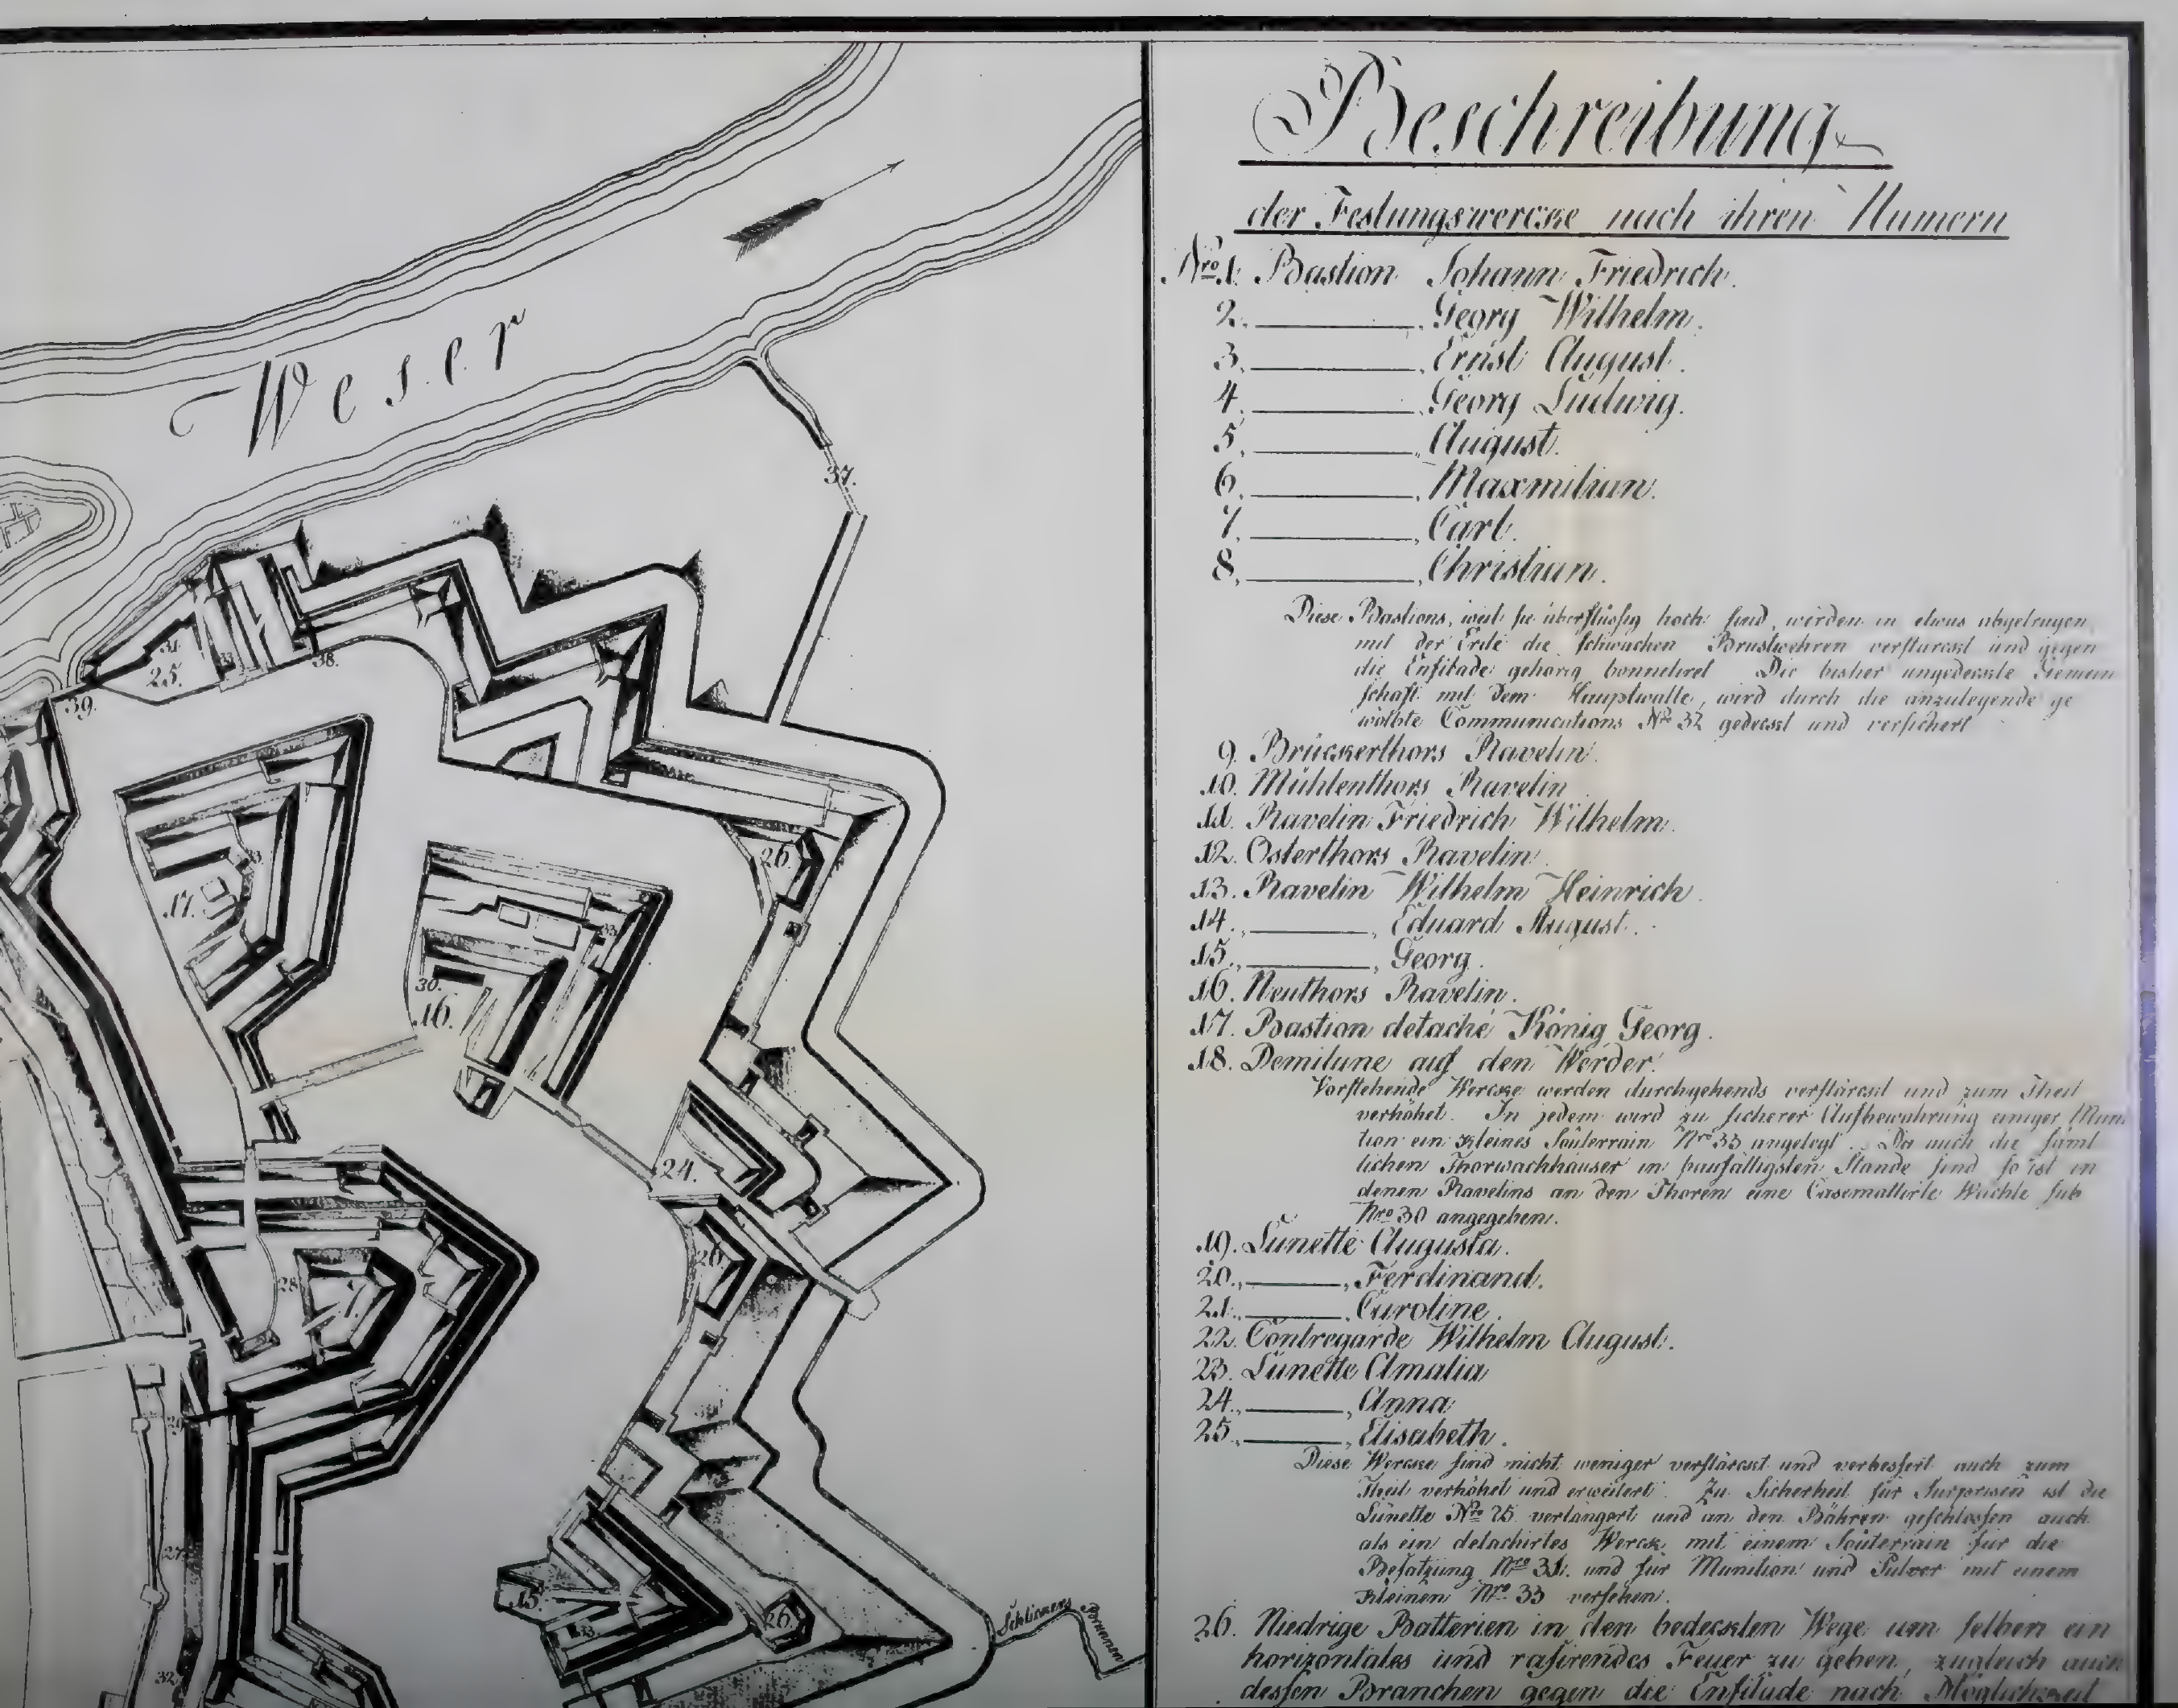 Beschreibung
der Festungswercke nach ihren Numern
Nro. 1. Bastion Johann Friedrich.
2. ———, Georg Wilhelm.
3. ———, Ernst August.
4. ———, Georg Ludwig.
5. ———, August.
6. ———, Maxmilian.
7. ———, Carl.
8. ———, Christian.
Diese Bastions, weil sie überflüssig hoch sind, wirden in etwas abgetragen,
mit der Erde die schwachen Brustwehren verstärckt und gegen
die Enfilade gehörig bonnetiret Die bisher ungedeckte Gemein
schaft mit dem Hauptwalle, wird durch die anzulegende ge
wölbte Communications No 32 gedeckt und versichert
9. Brückerthors Ravelin.
10. Mühlenthors Ravelin
11. Ravelin Friedrich Wilhelm.
12. Osterthors Ravelin.
13. Ravelin Wilhelm Heinrich.
14. ———, Eduard August.
15. ———, Georg.
16. Neuthors Ravelin.
17. Bastion detaché König Georg.
18. Demilune auf den Werder.
Vorstehende Wercke werden durchgehends verstärckt und zum Theil
verhöhet. In jedem wird zu sicherer Aufbewahrung einiger Muni
tion ein kleines Souterrain Nro 33 angelegt. Da auch die sämt
lichen Thorwachhäuser in baufälligsten Stande sind so ist in
denen Ravelins an den Thoren eine Casemattirte Wachte sub
Nro 30 angegeben.
19. Lünette Augusta.
20. ———, Ferdinand.
21. ———, Caroline.
22. Contregarde Wilhelm August.
23. Lünette Amalia
24. ———, Anna
25. ———, Elisabeth.
Diese Wercke sind nicht weniger verstärckt und verbessert auch zum
Theil verhöhet und erweitert. Zu Sicherheit für Surprisen ist die
Lünette No 25 verlängert und an den Bähren geschlossen auch
als ein detachirtes Werck mit einem Souterrain für die
Besatzung Nro 31. und für Munition und Pulver mit einem
kleinen Nro 33 versehen.
26. Niedrige Batterien in den bedeckten Wege um selben ein
horizontales und rasirendes Feuer zu geben, zugleich auch
dessen Branchen gegen die Enfilade nach Möglichkeit
Weser
37.
31.
25.
33
38.
39.
26.
33
17.
33
30.
16.
24.
26
28
29
27
15.
33
26.
32
Schlickers Brunnen